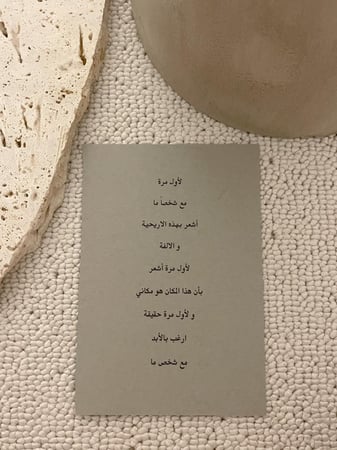 لأول مرة
مع شخصاً ما
أشعر بهذه الاريحية
و الالفة
لأول مرة أشعر
بأن هذا المكان هو مكاني
و لأول مرة حقيقة
ارغب بالأبد
مع شخص ما